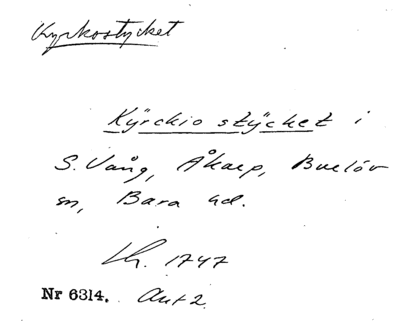 Kyrkostycket
Kÿrckio stÿcket i
S. Vång, Åkarp, Burlöv
sn, Bara hd.
Lh. 1747
Nr 6314. Akt 2